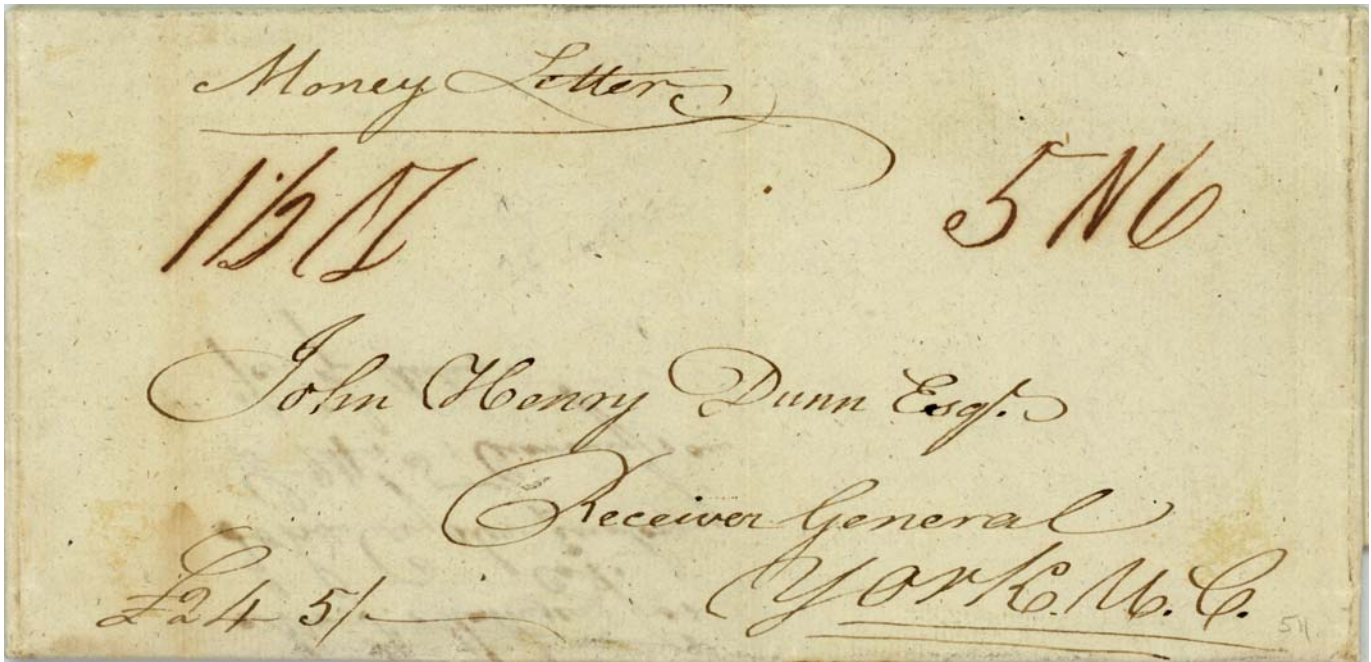 Money Letter
5 N 6
John Henry Dunn Esqr.
Receiver General
York. U. C.
£24 5/-